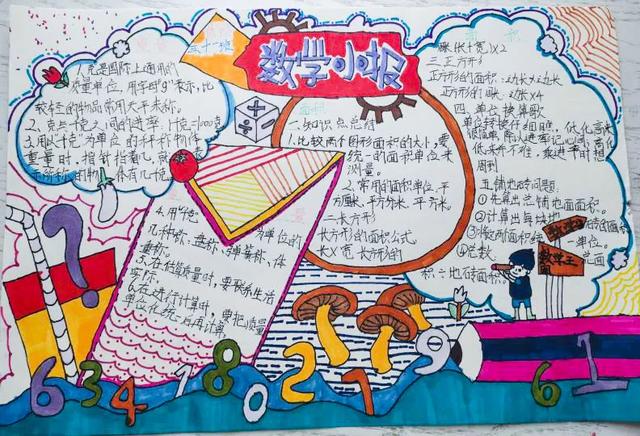 数学小报
三十一班
1.克是国际上通用的
质量单位,用字母"g"表示,比
较轻的物品常用天平来称。
2、克与千克之间的进率:1千克=1000克
3.用以"千克"为单位的秤称物体
重量时,指针指着几,就
所称的物体有几千克
4.用"千克"为单位的
几种称:盘称、弹簧称、体
重称。
5、在估算质量时,要联系生活
实际
6、在进行计算时,要把质量
单位化统一后再计算
面积
一、知识点总结
1.比较两个图形面积的大小,要
统一的面积单位来
测量。
2、常用的面积单位,平
方厘米,平方分米,平方米
二长方形
长方形的面积公式
长×宽 长方形的
(长+宽)×2
三正方形
正方形的面积:边长×边长
正方形的周长:边长×4
四.单位换算歌
单位换算仔细瞧,低化高来
除以进率记心间,高化
低来并不难,乘进率时想
周到
五铺地砖问题.
①先算出总铺地面面积。
②计算出每块地
③将两面积统一单位。
④总数
总面
积÷地砖面积。
数学
数学王国
?
6 3 4 1 8 0 2 7 9 6 1